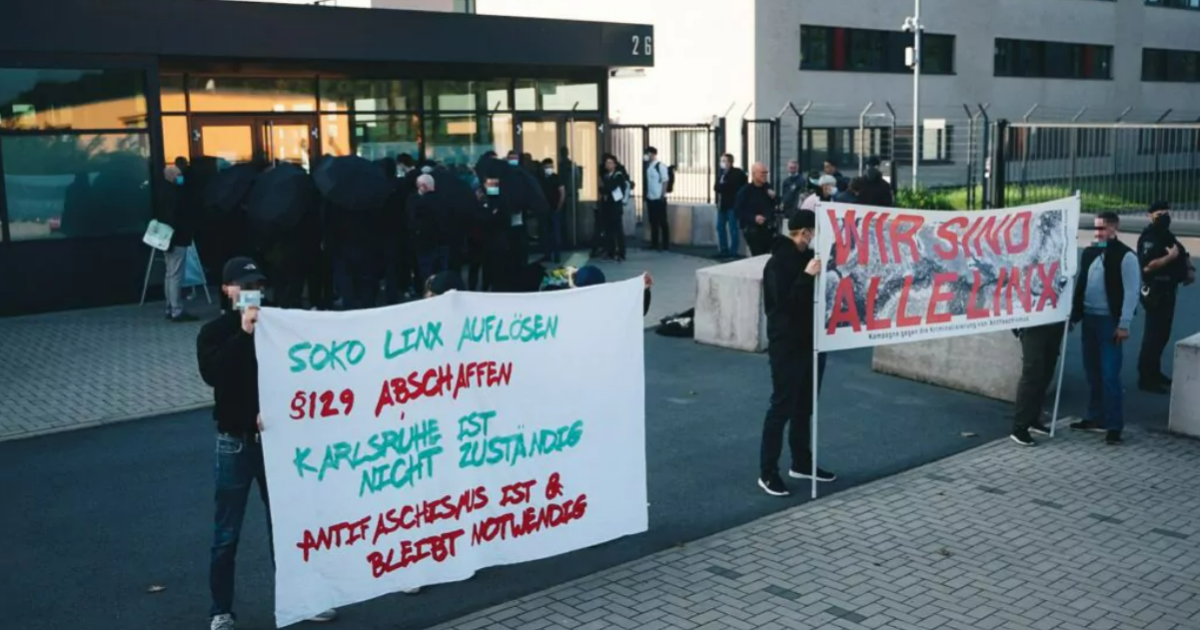 26
SOKO LINX AUFLÖSEN
§129 ABSCHAFFEN
KARLSRUHE IST
NICHT ZUSTÄNDIG
ANTIFASCHISMUS IST &
BLEIBT NOTWENDIG
WIR SIND
ALLE LINX
Kampagne gegen die Kriminalisierung von Antifaschismus